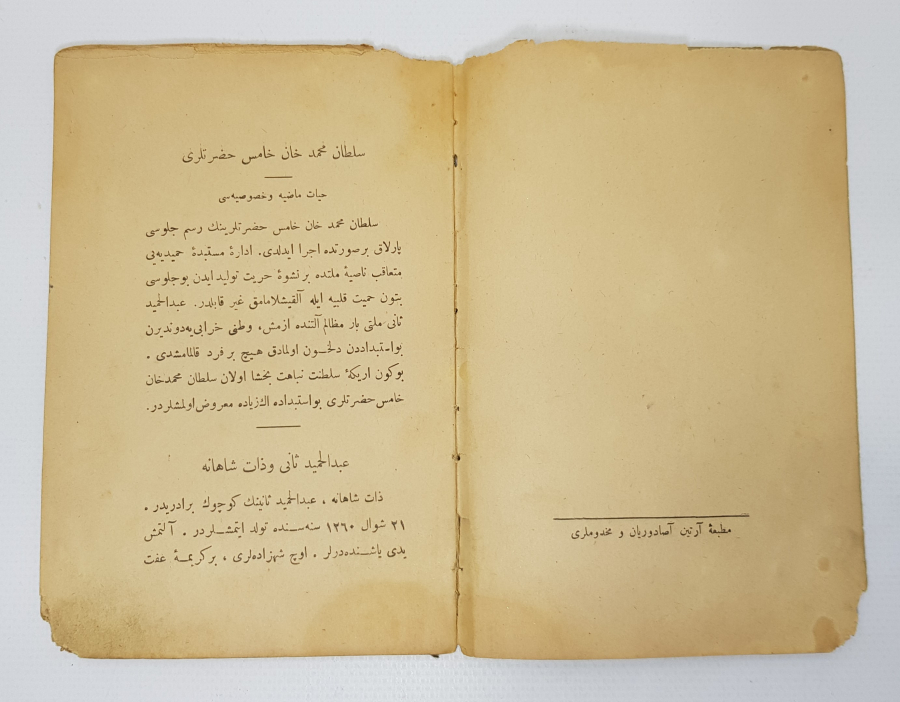 مطبعهٔ آرتین آصادوریان و مخدوملری
سلطان محمد خان خامس حضرتلری
حیات ماضیه و خصوصیه‌سی
سلطان محمد خان خامس حضرتلرینك رسم جلوسی
پارلاق برصورتده اجرا ایدلدی. ادارهٔ مستبدهٔ حمیدیه‌یی
متعاقب ناصیهٔ ملتده بر نشوهٔ حریت تولید ایدن بوجلوسی
بتون حمیت قلبیه ایله آلقیشلامامق غیر قابلدر. عبدالحمید
ثانی ملتی بار مظالم آلتنده ازمش، وطنی خرابی‌یه‌دوندیرن
بواستبداددن دلخون اولمادق هیچ بر فرد قالمامشدی .
بوکون اریکهٔ سلطنت نباهت بخشا اولان سلطان محمدخان
خامس حضرتلری بواستبداده اك‌زیاده معروض‌اولمشلردر.
عبدالحمید ثانی وذات شاهانه
ذات شاهانه ، عبدالحمید ثانینك کوچوك برادریدر .
٢١ شوال ١٢٦٠ سنه‌سنده تولد ایتمشلردر . آلتمش
یدی یاشنده‌درلر . اوچ شهزاده‌لری ، برکریمهٔ عفت